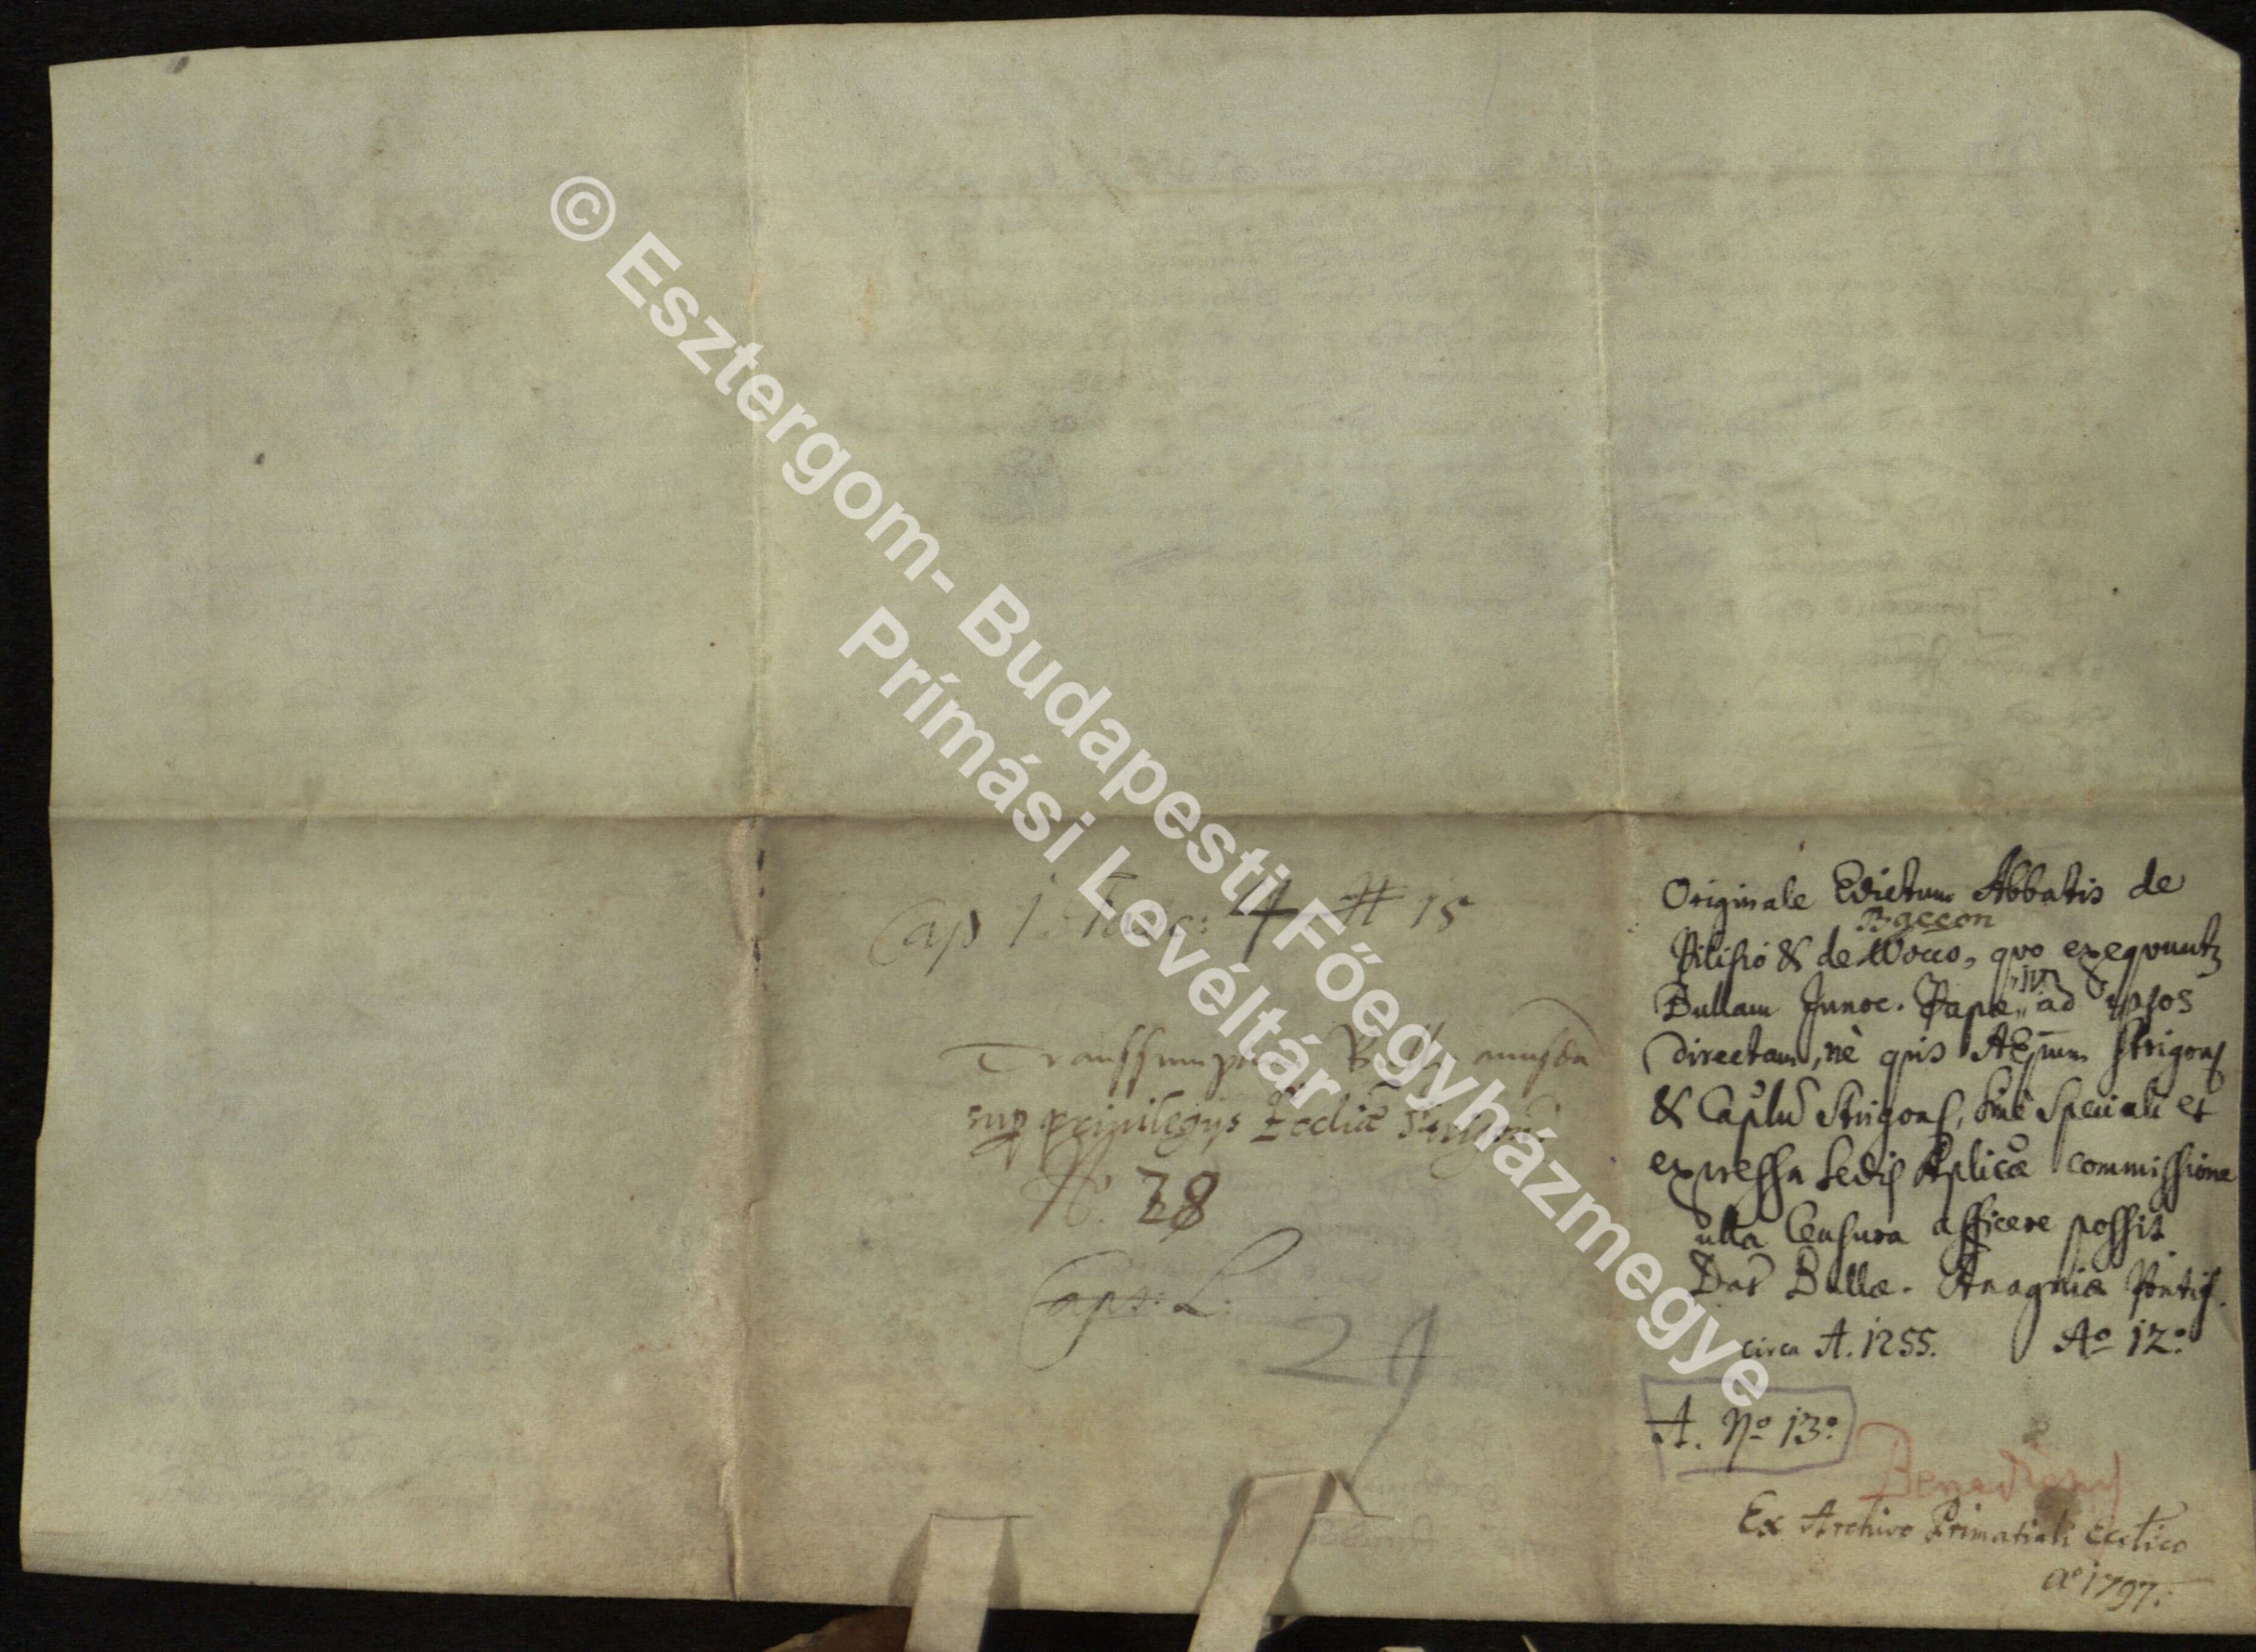 © Esztergom- Budapesti Főegyházmegye
Prímási Levéltár
Cap 1. Fasc: 4 # 15
Transsumptum
sup privilegijs Ecclie
N. 28
Caps: L:
24
Originale Edictum Abbatis de
Baccon
Pilisio & de Wocco, quo exequuntr
IV
Bullam Innoc. Papæ ad ipsos
directam, nè quis AEpum Strigon
& Caplu Strigon, sine speciali et
expressa Sedis Aplicæ commissione
ulla Censura afficere possit
Dat Bullæ. Anagniæ Pontif.
circa A. 1255. Aº 12º
A. Nº 13º
Ex Archivo Primatiali Ecctico
aº 1797.